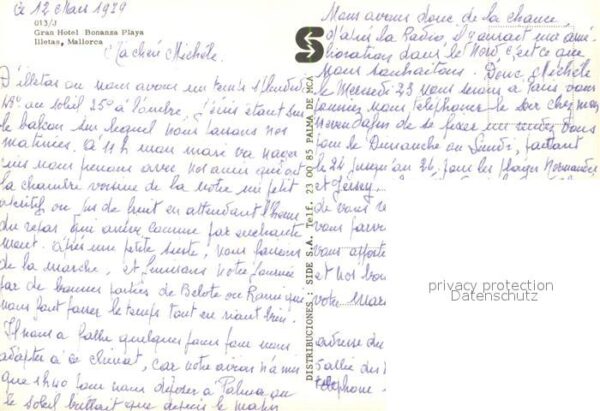 Le 12 Mars 1979
013/J
Gran Hotel Bonanza Playa
Illetas, Mallorca
Ma chère Michèle.
D'illetas ou nous avons un temps splendide
45° au soleil 25° à l'ombre, j'écris étant sur
le balcon sur lequel nous passons nos
matinées. A 11h mon mari va nager
puis nous prenons avec nos amis qui ont
la chambre voisine de la notre un petit
apéritif ou jus de fruit en attendant l'heure
du repas, qui arrive comme par enchante
ment. Après une petite sieste, nous faisons
de la marche, et finissons notre journée
par de bonnes parties de Belote ou Rami qui
nous font passer le temps tout en riant bien.
Il nous a fallu quelques jours pour nous
adapter à ce climat, car notre avion n'a mis
que 1h40 pour nous déposer à Palma ou
le soleil brillait que depuis le matin
DISTRIBUCIONES: SIDE S.A. Telf. 23 00 85 PALMA DE MCA
Nous avons donc de la chance,
d'après la Radio, il y aurait une amé
lioration dans le Nord, c'est ce que
nous souhaitons. Donc, Michèle
le Mercredi 23 nous serons à Paris vous
pourriez nous téléphoner le soir chez nous
de se fixer un rendez vous
pour le Dimanche ou Lundi, partant
le 24 jusqu'au 26, pour les plages Normandes
et Jersey
de vous
vous
vous apporte
et nos bon
votre Mar
adresse de
Sallie des
téléphone
privacy protection
Datenschutz